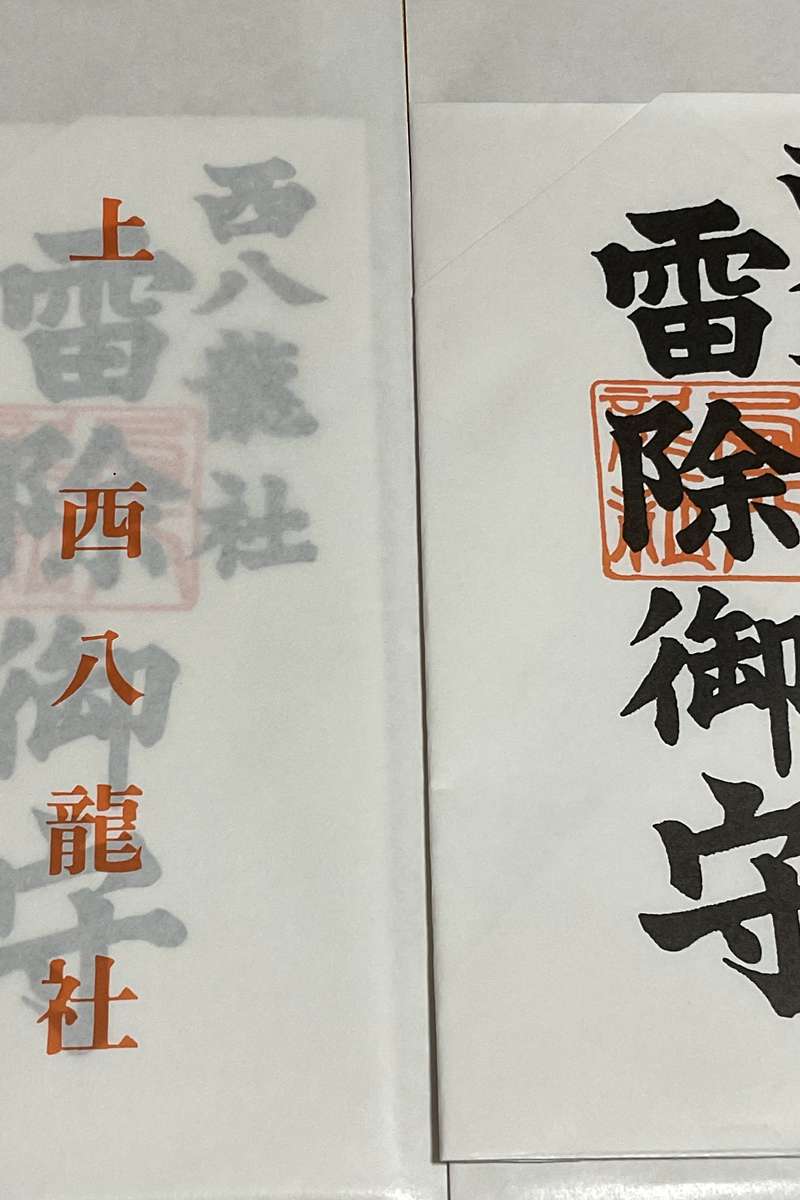 上 西八龍社
西八龍社
雷除御守
雷除御守